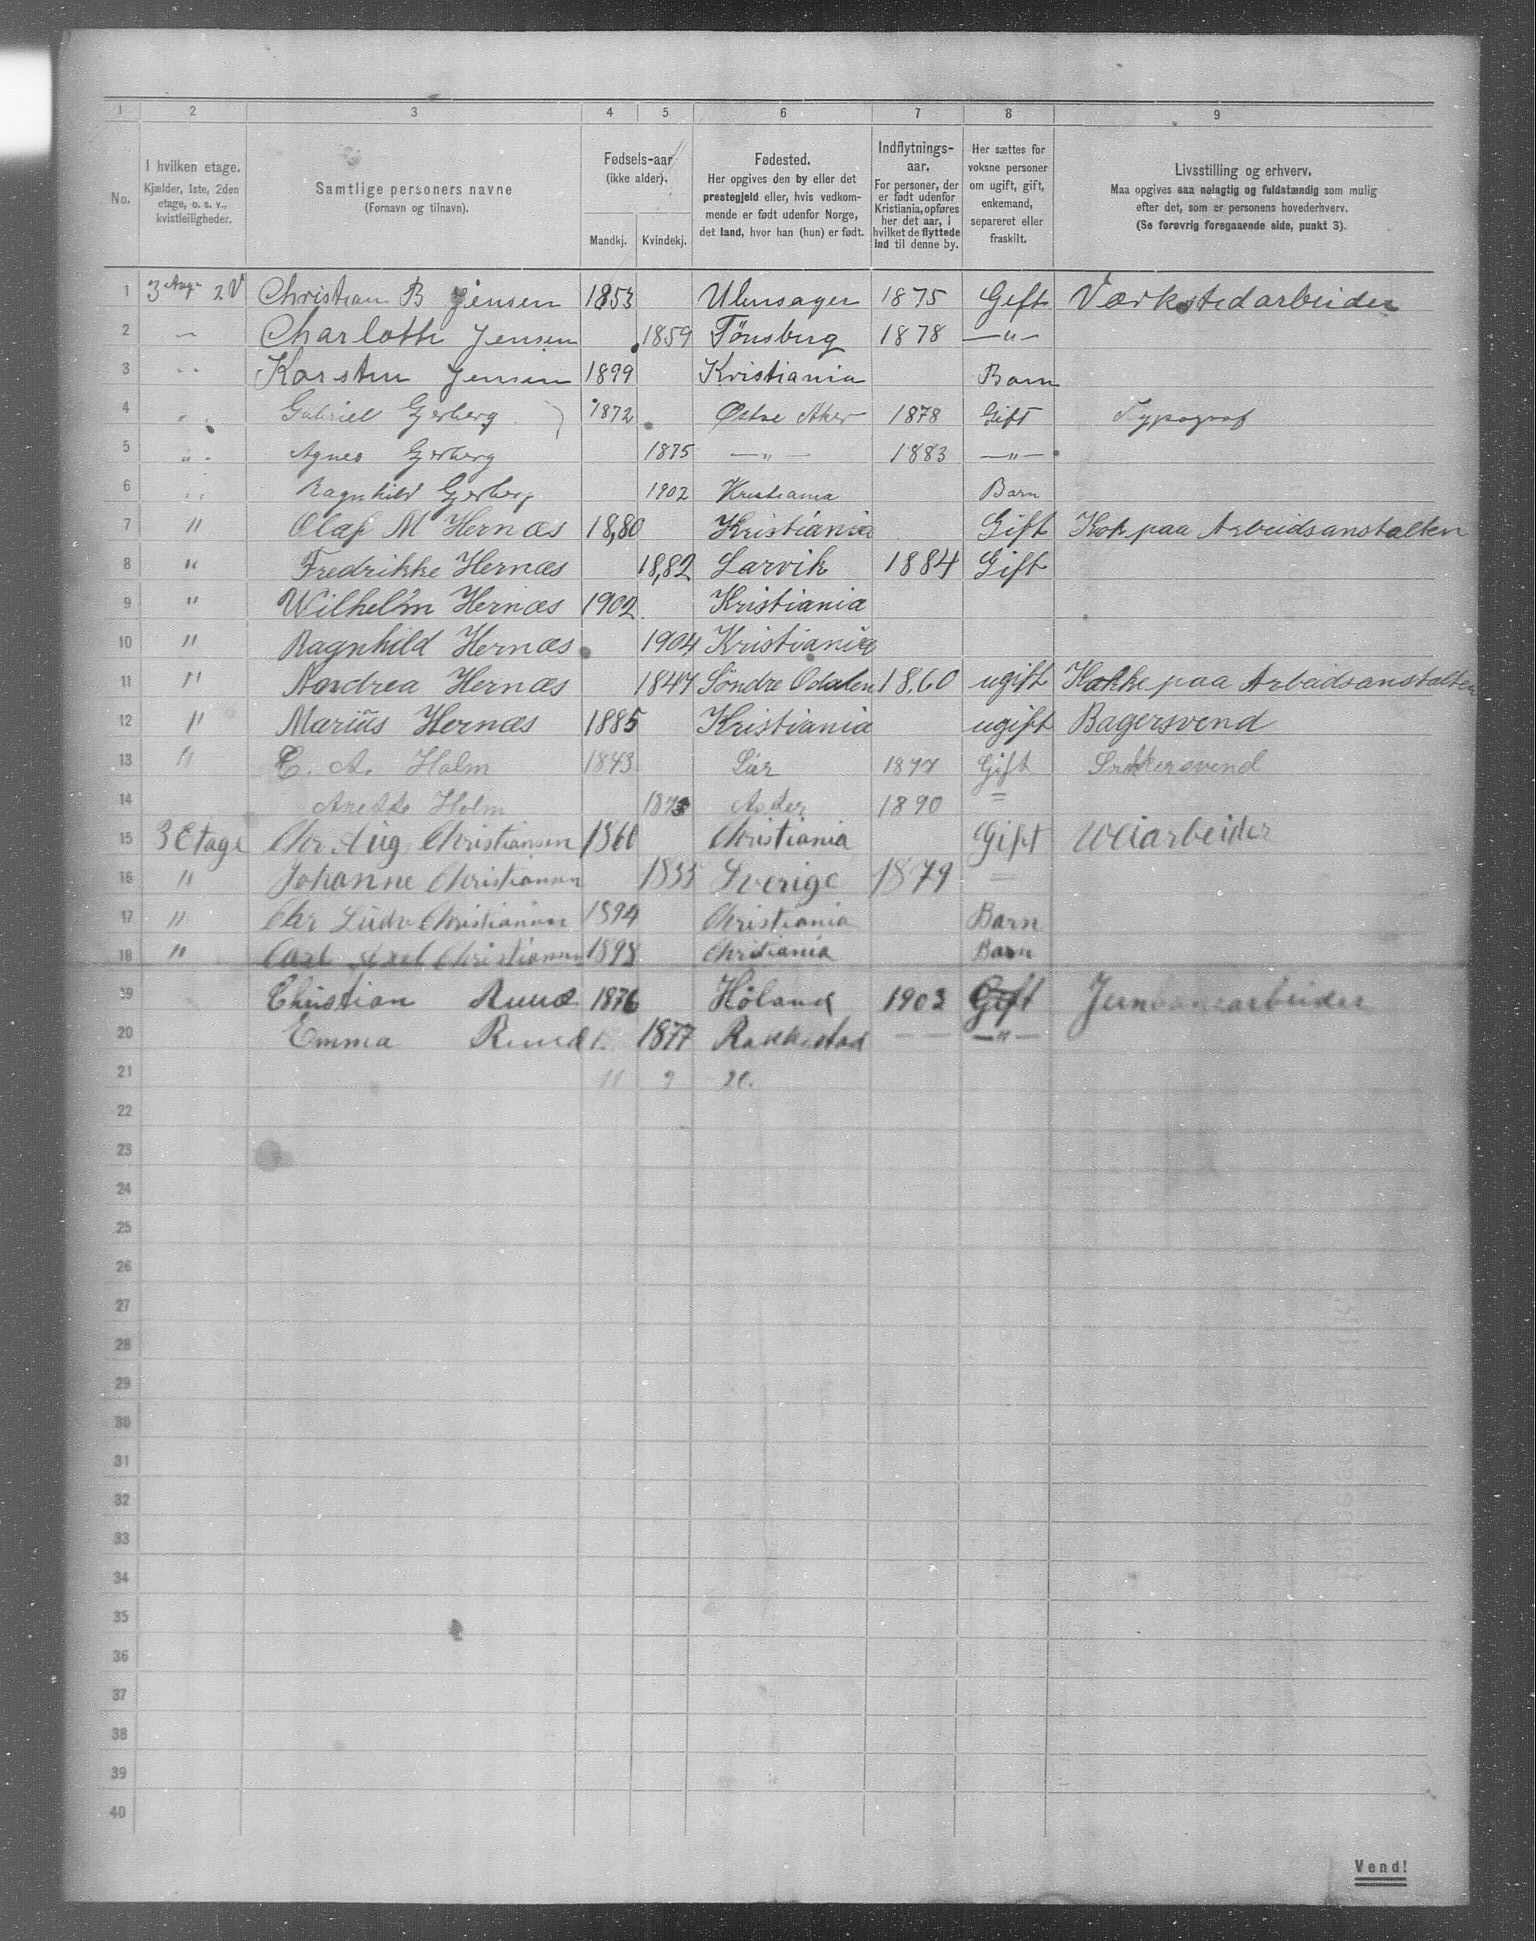 1 2 3 4 5 6 7 8 9
No.
I hvilken etage.
Kjælder, 1ste, 2den
etage, o. s. v.,
kvistleiligheder.
Samtlige personers navne
(Fornavn og tilnavn).
Fødsels-aar
(ikke alder).
Mandkj. Kvindekj.
Fødested.
Her opgives den by eller det
prestegjeld eller, hvis vedkom-
mende er født udenfor Norge,
det land, hvor han (hun) er født.
Indflytnings-
aar.
For personer, der
er født udenfor
Kristiania, opføres
her det aar, i
hvilket de flyttede
ind til denne by.
Her sættes for
voksne personer
om ugift, gift,
enkemand,
separeret eller
fraskilt.
Livsstilling og erhverv.
Maa opgives saa nøiagtig og fuldstændig som mulig
efter det, som er personens hovederhverv.
(Se forøvrig foregaaende side, punkt 3).
1 3 etage 2 V Christian B Jensen 1853 Ulensager 1875 Gift Værkstedarbeider
2 — Charlotte Jensen 1859 Tönsberg 1878 —"—
3 " Karsten Jensen 1899 Kristiania Barn
4 " Gabriel Gjerberg 1872 Østre Aker 1878 Gift Typograf
5 " Agnes Gjerberg 1875 —"— 1883 —"—
6 " Ragnhild Gjerberg 1902 Kristiania Barn
7 " Olaf M Hernæs 1880 Kristiania Gift Kok paa Arbeidsanstalten
8 " Fredrikke Hernæs 1882 Larvik 1884 Gift
9 " Wilhelm Hernæs 1902 Kristiania
10 " Ragnhild Hernæs 1904 Kristiania
11 " Andrea Hernæs 1847 Söndre Odalen 1860 ugift Kokke paa Arbeidsanstalten
12 " Marius Hernæs 1885 Kristiania ugift Bagersvend
13 " C. A. Holm 1843 1877 Gift Snekkersvend
14 Holm 1873 Asker 1890 =
15 3 Etage Chr Aug Christiansen 1860 Christiania Gift
16 " Johanne Christiansen 1855 Sverige 1879 =
17 " Chr Ludv Christiansen 1894 Christiania Barn
18 " Carl Axel Christiansen 1898 Christiania Barn
19 Christian Ruud 1876 Höland 1903 Gift Jernbanearbeider
20 Emma Ruud 1877 Rakkestad — — —"—
21 11 9 20.
22
23
24
25
26
27
28
29
30
31
32
33
34
35
36
37
38
39
40
Vend!